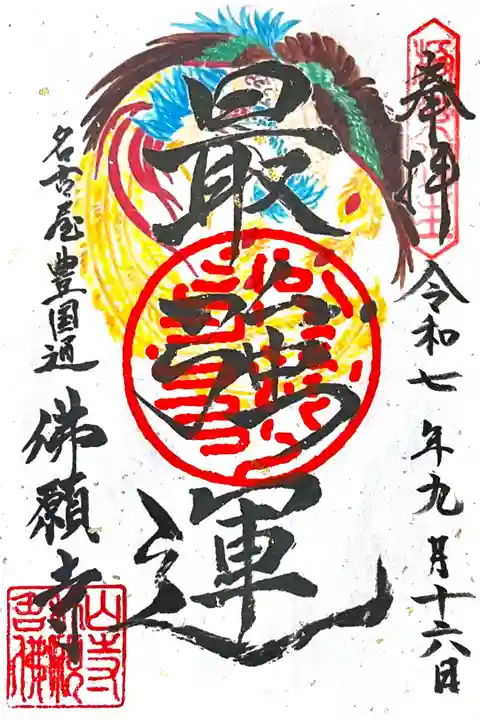 奉拝
令和七年九月十六日
最強運
名古屋豊国通
佛願寺